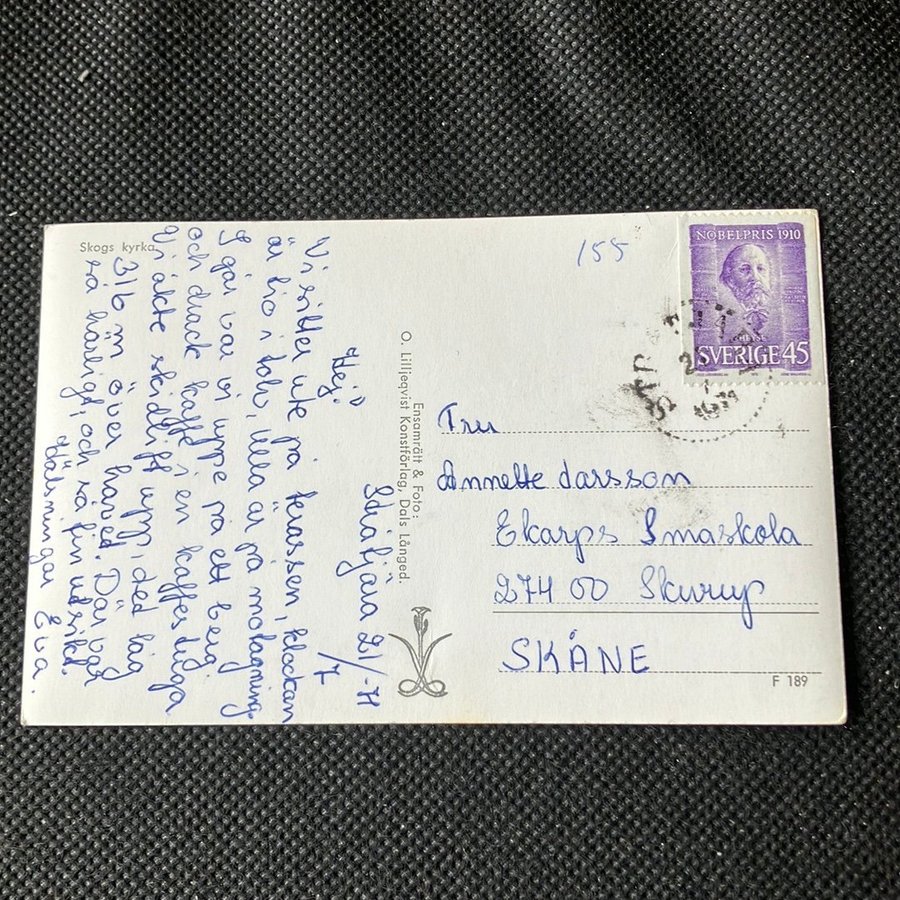 Skogs kyrka
155
NOBELPRIS 1910
HEYSE
SVERIGE 45
21/7 -71
Hej!
Vi sitter ute på terassen, klockan
är tio i tolv, Ulla är på mottagning.
I går var vi uppe på ett berg
och drack kaffe i en kaffestuga
Vi åkte skidlift upp, det låg
316 m över havet. Där var
så härligt och så fin utsikt.
Hälsningar Eva.
Ensamrätt & Foto:
O. Lilljeqvist Konstförlag, Dals Långed.
Fru
Annette Larsson
Ekarps Småskola
274 00 Skurup
SKÅNE
F 189